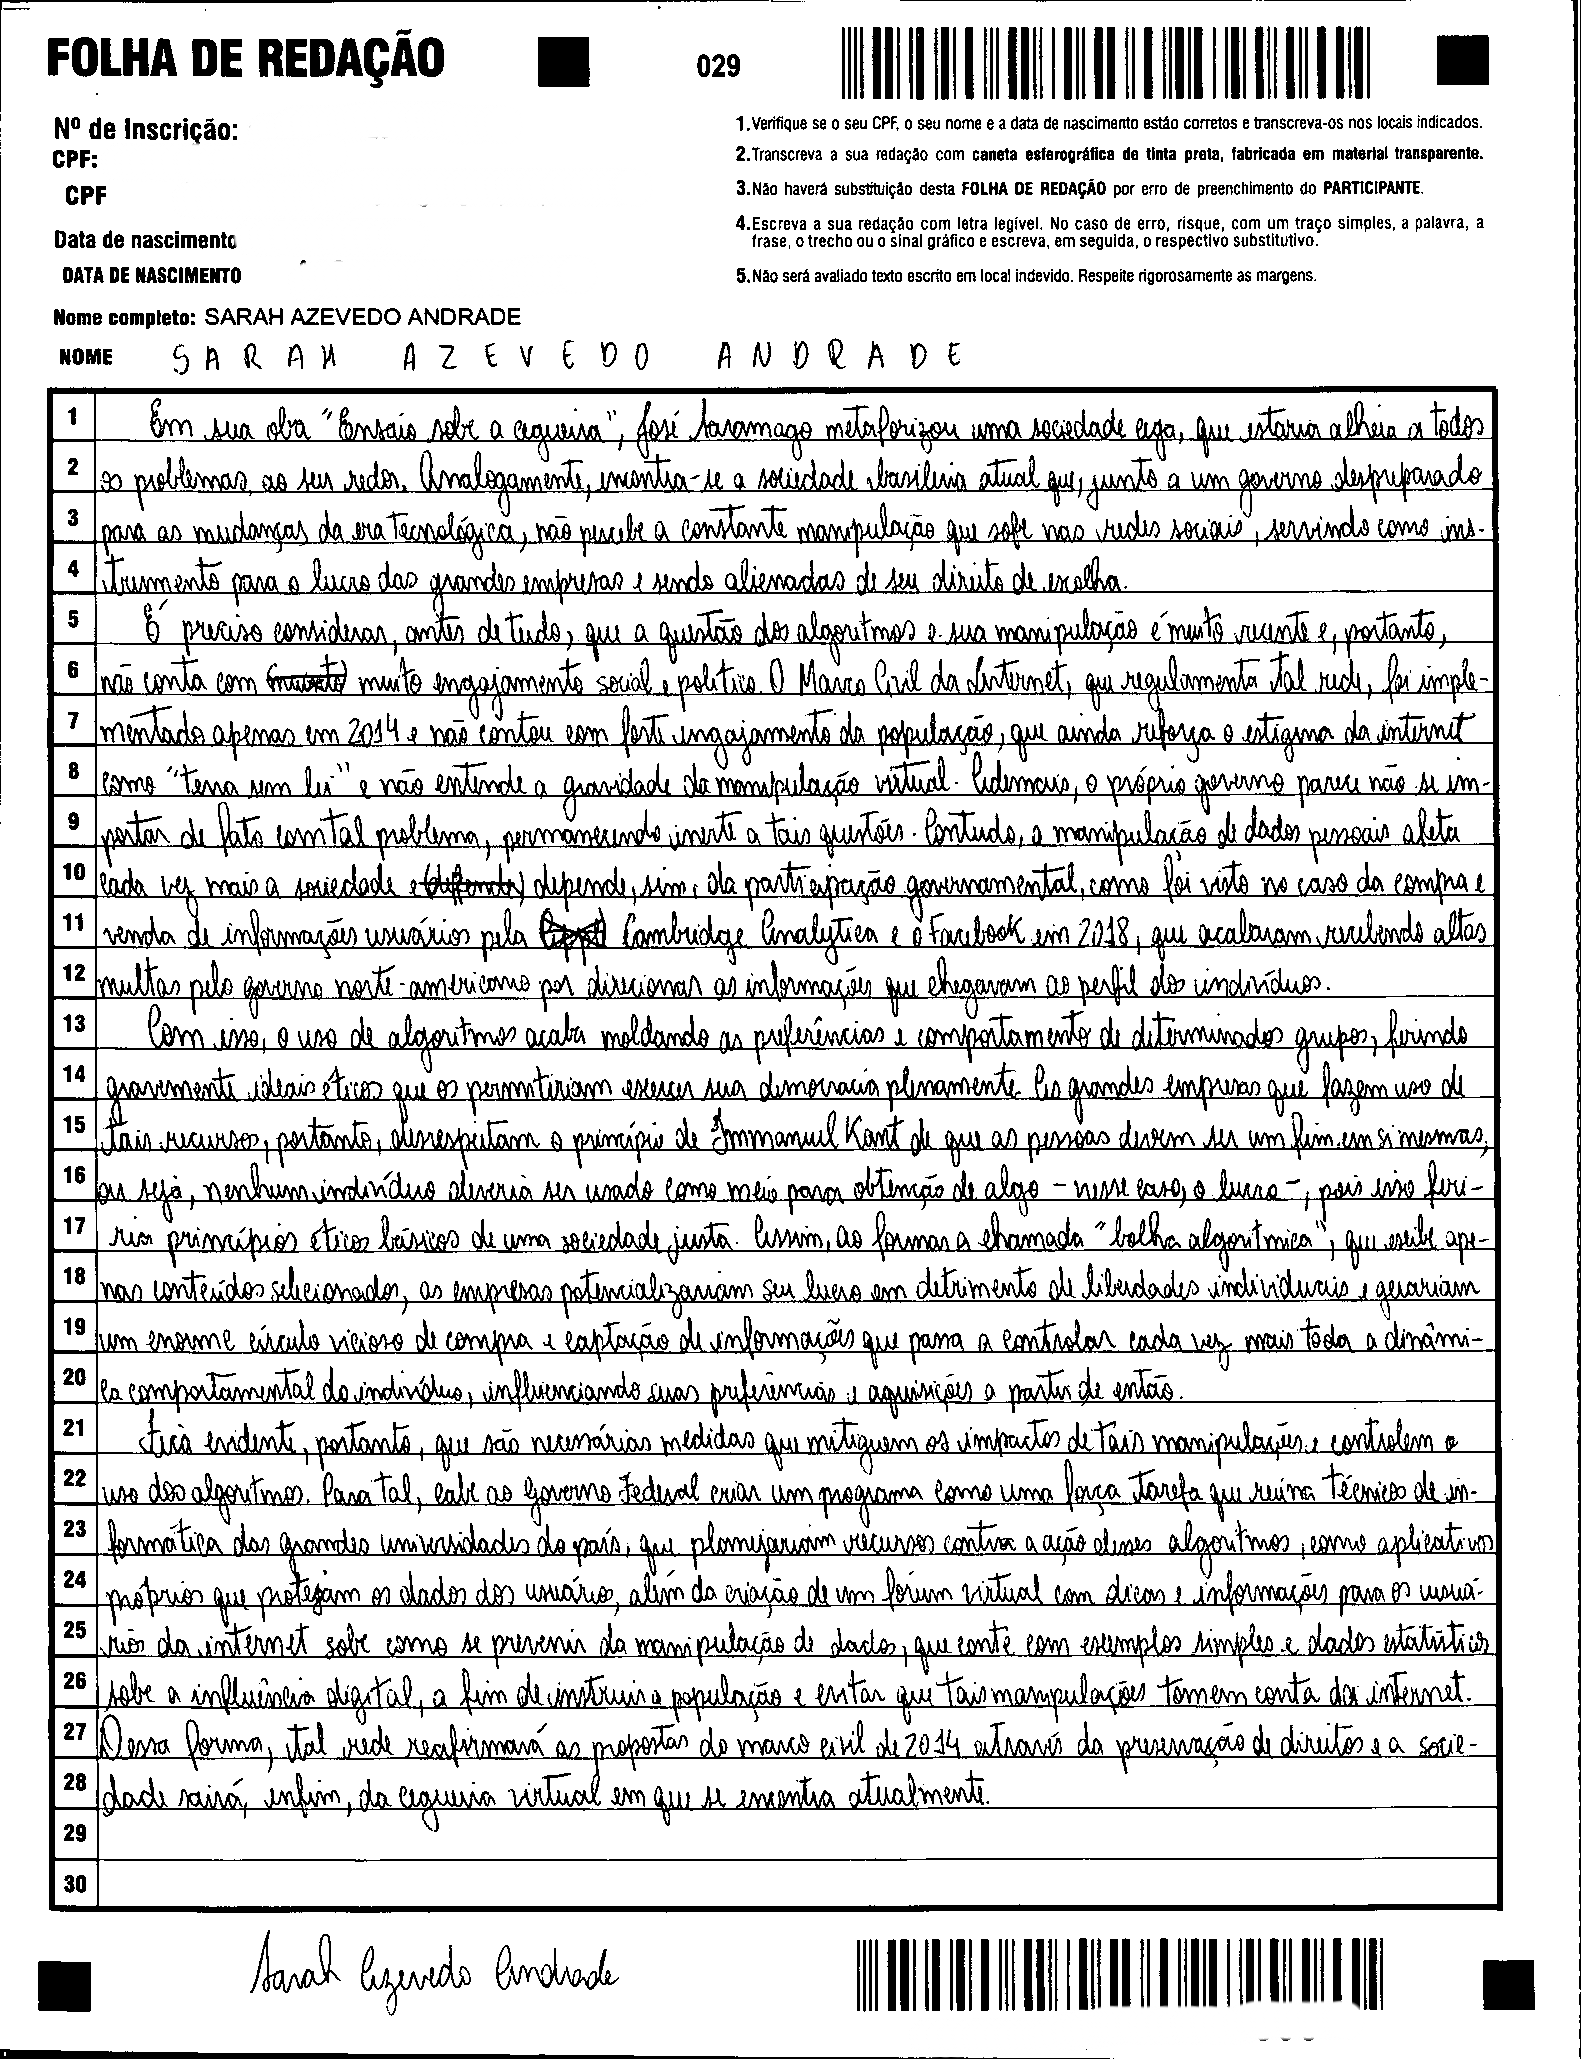 FOLHA DE REDAÇÃO
029
Nº de Inscrição:
CPF:
CPF
Data de nascimento
DATA DE NASCIMENTO
Nome completo: SARAH AZEVEDO ANDRADE
NOME SARAH AZEVEDO ANDRADE
1.Verifique se o seu CPF, o seu nome e a data de nascimento estão corretos e transcreva-os nos locais indicados.
2.Transcreva a sua redação com caneta esferográfica de tinta preta, fabricada em material transparente.
3.Não haverá substituição desta FOLHA DE REDAÇÃO por erro de preenchimento do PARTICIPANTE.
4.Escreva a sua redação com letra legível. No caso de erro, risque, com um traço simples, a palavra, a
frase, o trecho ou o sinal gráfico e escreva, em seguida, o respectivo substitutivo.
5.Não será avaliado texto escrito em local indevido. Respeite rigorosamente as margens.
1 Em sua obra "Ensaio sobre a cegueira", José Saramago metaforizou uma sociedade cega, que estaria alheia a todos
2 os problemas ao seu redor. Analogamente, encontra-se a sociedade brasileira atual que, junto a um governo despreparado
3 para as mudanças da era tecnológica, não percebe a constante manipulação que sofre nas redes sociais, servindo como ins-
4 trumento para o lucro das grandes empresas e sendo alienadas de seu direito de escolha.
5 É preciso considerar, antes de tudo, que a questão dos algoritmos e sua manipulação é muito recente e, portanto,
6 não conta com (muito) muito engajamento social e político. O Marco Civil da Internet, que regulamenta tal rede, foi imple-
7 mentado apenas em 2014 e não contou com forte engajamento da população, que ainda reforça o estigma da internet
8 como "terra sem lei" e não entende a gravidade da manipulação virtual. Ademais, o próprio governo parece não se im-
9 portar de fato com tal problema, permanecendo inerte a tais questões. Contudo, a manipulação de dados pessoais afeta
10 cada vez mais a sociedade e depende, sim, da participação governamental, como foi visto no caso da compra e
11 venda de informações usuários pela Cambridge Analytica e o Facebook em 2018, que acabaram recebendo altas
12 multas pelo governo norte-americano por direcionar as informações que chegavam ao perfil dos indivíduos.
13 Com isso, o uso de algoritmos acaba moldando as preferências e comportamento de determinados grupos, ferindo
14 gravemente ideais éticos que os permitiriam exercer sua democracia plenamente. As grandes empresas que fazem uso de
15 tais recursos, portanto, desrespeitam o princípio de Immanuel Kant de que as pessoas devem ser um fim em si mesmas,
16 ou seja, nenhum indivíduo deveria ser usado como meio para obtenção de algo - nesse caso, o lucro -, pois isso feri-
17 ria princípios éticos básicos de uma sociedade justa. Assim, ao formar a chamada "bolha algoritmica", que exibe ape-
18 nas conteúdos selecionados, as empresas potencializariam seu lucro em detrimento de liberdades individuais e gerariam
19 um enorme círculo vicioso de compra e captação de informações que passa a controlar cada vez mais toda a dinâmi-
20 ca comportamental do indivíduo, influenciando suas preferências e aquisições a partir de então.
21 Fica evidente, portanto, que são necessárias medidas que mitiguem os impactos de tais manipulações e controlem o
22 uso dos algoritmos. Para tal, cabe ao Governo Federal criar um programa como uma força tarefa que reúna técnicos de in-
23 formática das grandes universidades do país, que planejariam recursos contra a ação desses algoritmos, como aplicativos
24 próprios que protejam os dados dos usuário, além da criação de um fórum virtual com dicas e informações para os usuá-
25 rios da internet sobe como se prevenir da manipulação de dados, que conte com exemplos simples e dados estatísticos
26 sobe a influência digital, a fim de instruir a população e evitar que tais manipulações tomem conta da internet.
27 Dessa forma, tal rede reafirmará as propostas do marco civil de 2014 através da preservação de direitos e a socie-
28 dade sairá, enfim, da cegueira virtual em que se encontra atualmente.
29
30
Sarah Azevedo Andrade